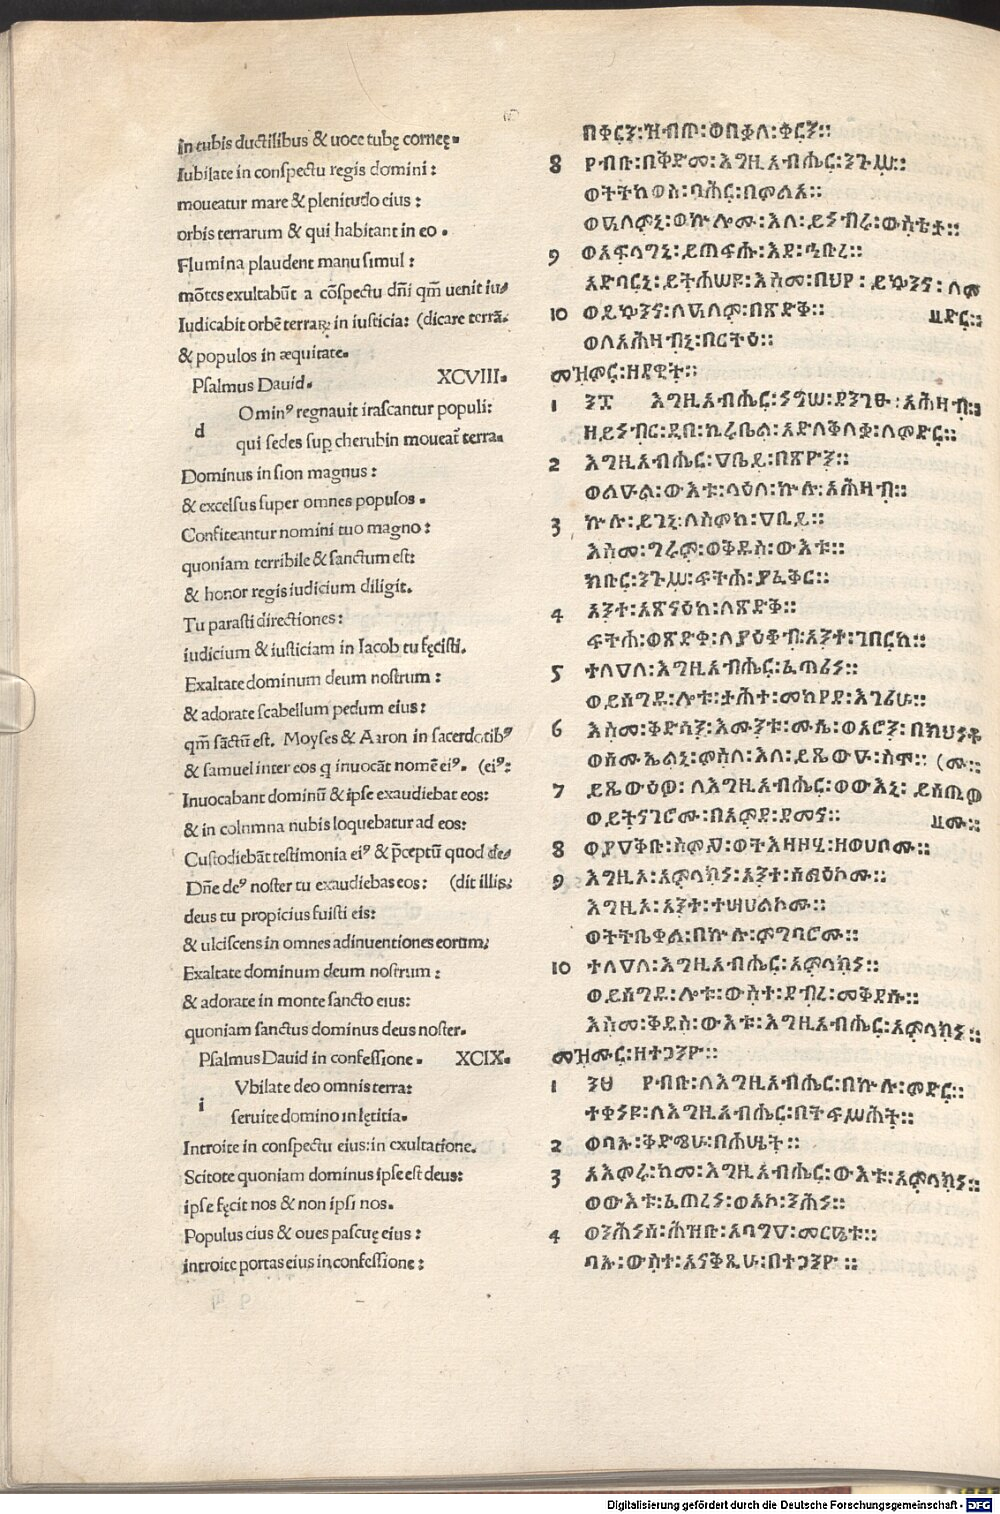 In tubis ductilibus & uoce tubę corneę.
Iubilate in conspectu regis domini:
moueatur mare & plenitudo eius:
orbis terrarum & qui habitant in eo.
Flumina plaudent manu simul:
mōtes exultabūt a cōspectu dn̄i qm̄ uenit iu/
Iudicabit orbē terrarꝝ in iusticia: (dicare terrā.
& populos in æquitate.
Psalmus Dauid. XCVIII.
d Ominꝰ regnauit irascantur populi:
qui sedes suꝑ cherubin moueat̄ terra.
Dominus in sion magnus:
& excelsus super omnes populos.
Confiteantur nomini tuo magno:
quoniam terribile & sanctum est:
& honor regis iudicium diligit.
Tu parasti directiones:
iudicium & iusticiam in Iacob tu fęcisti.
Exaltate dominum deum nostrum:
& adorate scabellum pedum eius:
qm̄ sāctū est. Moyses & Aaron in sacerdotibꝰ
& samuel inter eos q inuocāt nomē eiꝰ. (eiꝰ:
Inuocabant dominū & ipse exaudiebat eos:
& in colnmna nubis loquebatur ad eos:
Custodiebāt testimonia eiꝰ & p̄ceptū quod de/
Dn̄e deꝰ noster tu exaudiebas eos: (dit illis:
deus tu propicius fuisti eis:
& ulciscens in omnes adinuentiones eorum;
Exaltate dominum deum nostrum:
& adorate in monte sancto eius:
quoniam sanctus dominus deus noster.
Psalmus Dauid in confessione. XCIX.
i Vbilate deo omnis terra:
seruite domino in lętitia.
Introite in conspectu eius: in exultatione.
Scitote quoniam dominus ipse est deus:
ipse fęcit nos & non ipsi nos.
Populus eius & oues pascuę eius:
introite portas eius in confessione:
በቀርን፡ዝብጦ፡ወበቃለ፡ቀርን።
8 የብቡ፡በቅድመ፡እግዚአብሔር፡ንጉሥ።
ወትትከወስ፡ባሕር፡በምልኣ።
ወዓለምኒ፡ወኵሎሙ፡እለ፡ይነብሩ፡ውስቴታ።
9 ወአፍላግኒ፡ይጠፍሑ፡እደ፡ኅቡረ።
አድባርኒ፡ይትሐሠዩ፡እስመ፡በጽሐ፡ይኰንና፡ለም
10 ወይኴንና፡ለዓለም፡በጽድቅ። ድር።
ወለአሕዛብኒ፡በርትዕ።
መዝሙር፡ዘዳዊት።
1 እግዚአብሔር፡ነግሠ፡ደንገፁ፡አሕዛብ።
ዘይነብር፡ዲበ፡ኪሩቤል፡አድለቅለቃ፡ለምድር።
2 እግዚአብሔር፡ዐቢይ፡በጽዮን።
ወልዑል፡ውእቱ፡ላዕለ፡ኵሉ፡አሕዛብ።
3 ኵሉ፡ይገኒ፡ለስምከ፡ዐቢይ።
እስመ፡ግሩም፡ወቅዱስ፡ውእቱ።
ክቡር፡ንጉሥ፡ፍትሐ፡ያፈቅር።
4 አንተ፡አጽናዕከ፡ለጽድቅ።
ፍትሐ፡ወጽድቀ፡ለያዕቆብ፡አንተ፡ገበርከ።
5 ተለዐለ፡እግዚአብሔር፡ፈጣሪነ።
ወይሰግዱ፡ሎቱ፡ታሕተ፡መከየደ፡እገሪሁ።
6 እስመ፡ቅዱሳን፡እሙንቱ፡ሙሴ፡ወአሮን፡በክህነቶ
ወሰሙኤልኒ፡ምስለ፡እለ፡ይጼውዑ፡ስሞ። (ሙ።
7 ይጼውዕዎ፡ለእግዚአብሔር፡ወውእኒ፡ይሰጠዎ
ወይትናገሮሙ፡በዐምደ፡ደመና። ሙ።
8 ወያዐቅቡ፡ስምዖ፡ወትእዛዞኒ፡ዘወሀቦሙ።
9 እግዚኦ፡አምላክነ፡አንተ፡ሰማዕኮሙ።
እግዚኦ፡አንተ፡ተሣሀልኮሙ።
ወትትቤቀል፡በኵሉ፡ምግባሮሙ።
10 ተለዐለ፡እግዚአብሔር፡አምላክነ።
ወይሰግዱ፡ሎቱ፡ውስተ፡ደብረ፡መቅደሱ።
እስመ፡ቅዱስ፡ውእቱ፡እግዚአብሔር፡አምላክነ።
መዝሙር፡ዘተጋንዮ።
1 የብቡ፡ለእግዚአብሔር፡በኵሉ፡ምድር።
ተቀነዩ፡ለእግዚአብሔር፡በትፍሥሕት።
2 ወባኡ፡ቅድሜሁ፡በሐሤት።
3 አእምሩ፡ከመ፡እግዚአብሔር፡ውእቱ፡አምላክነ።
ወውእቱ፡ፈጠረነ፡ወአኮ፡ንሕነ።
4 ወንሕነሰ፡ሕዝቡ፡አባግዐ፡መርዔቱ።
ባኡ፡ውስተ፡አናቅጺሁ፡በተጋንዮ።
Digitalisierung gefördert durch die Deutsche Forschungsgemeinschaft - DFG